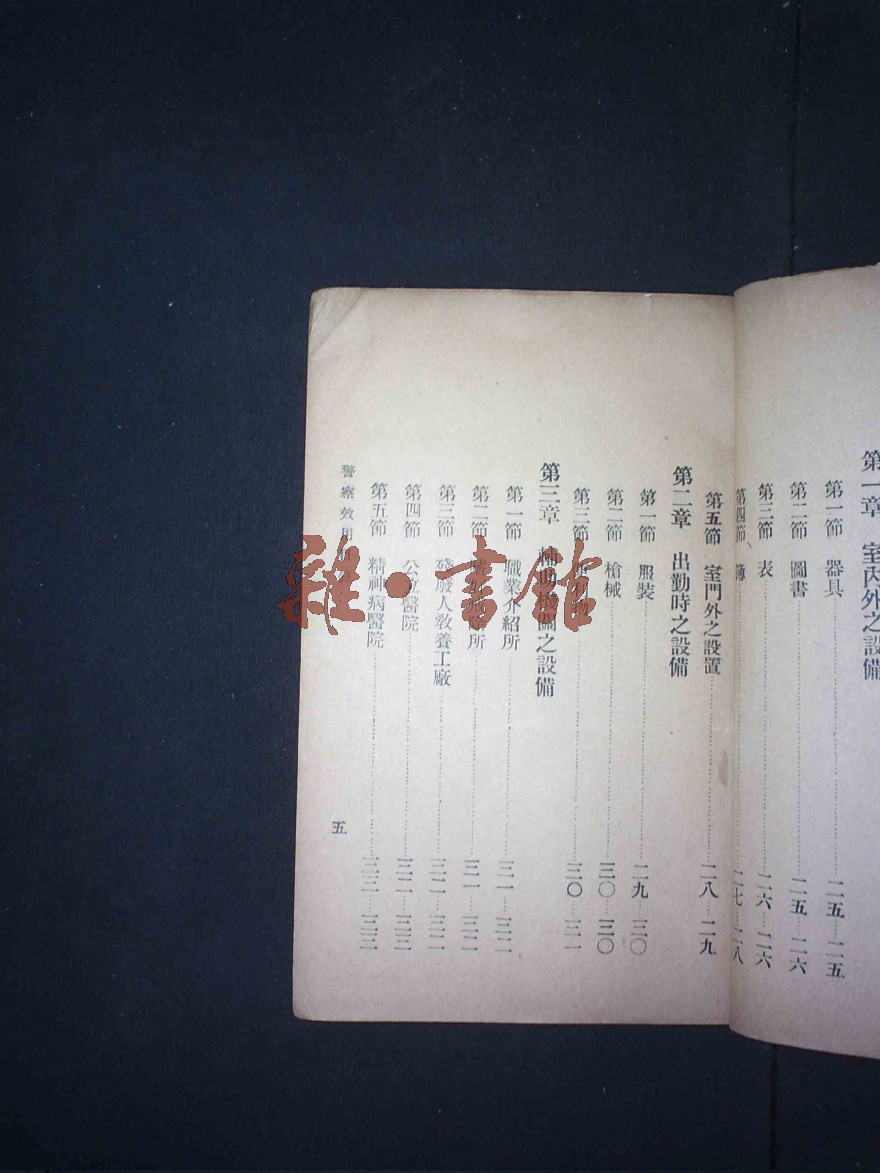 第一章 室內外之設備
第一節 器具 二五 二五
第二節 圖書 二五 二六
第三節 表 二六 二六
第四節 簿 二七 二八
第五節 室門外之設置 二八 二九
第二章 出勤時之設備
第一節 服裝 二九 三〇
第二節 槍械 三〇 三〇
第三節 三〇 三一
第三章 輔助機關之設備
第一節 職業介紹所 三一 三二
第二節 所 三一 三二
第三節 殘廢人教養工廠 三二 三二
第四節 公立醫院 三二 三三
第五節 精神病醫院 三三 三三
警察效用
五
雜·書館